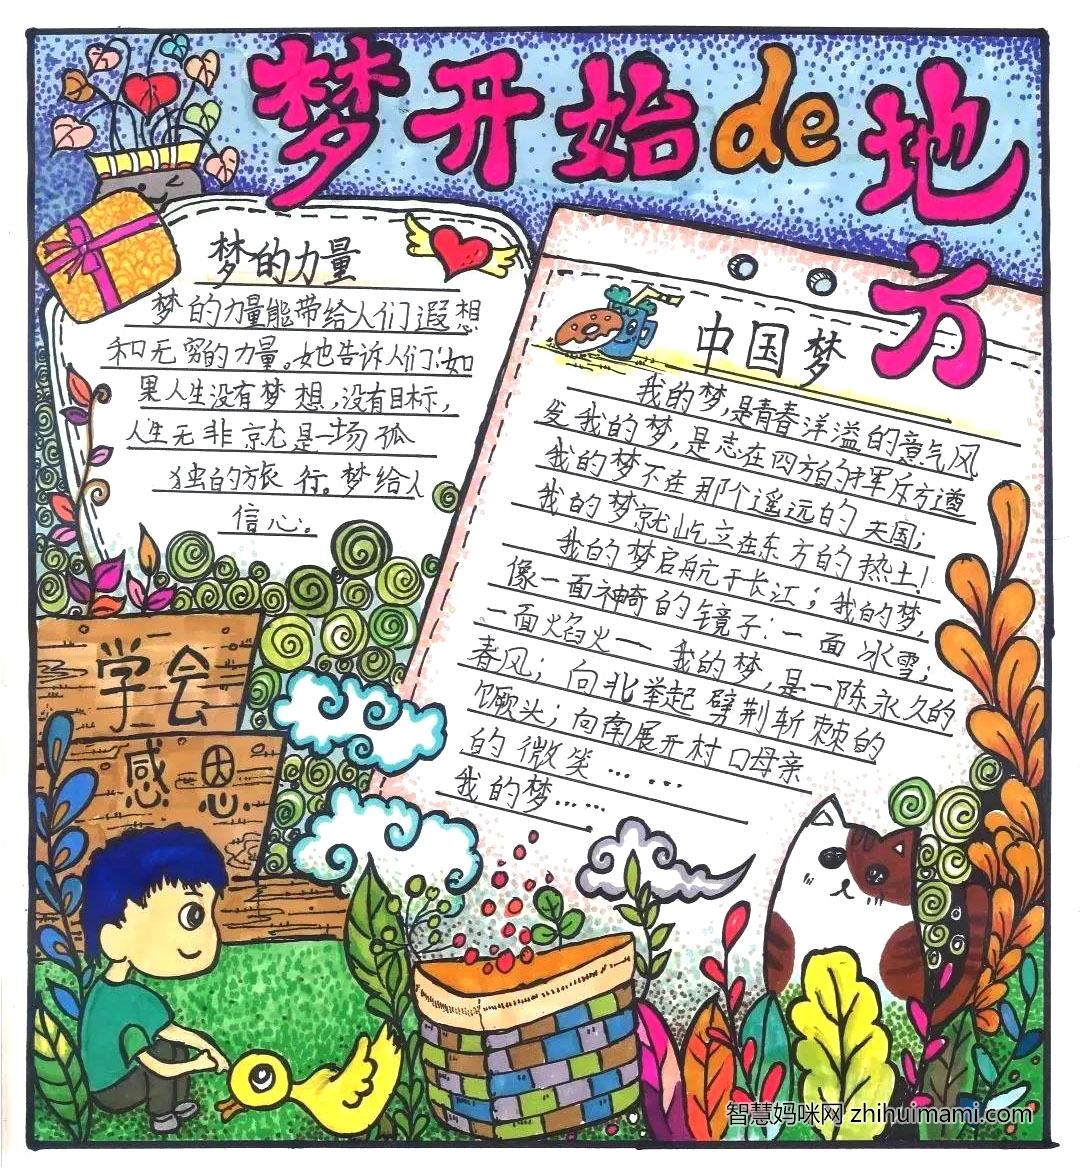 梦开始de地方
梦的力量
梦的力量能带给人们遐想
和无穷的力量。她告诉人们:如
果人生没有梦想,没有目标,
人生无非就是一场孤
独的旅行。梦给人
信心。
中国梦
我的梦,是青春洋溢的意气风
发我的梦,是志在四方的挥斥方遒
我的梦不在那个遥远的美国;
我的梦就屹立在东方的热土!
我的梦启航于长江;我的梦,
像一面神奇的镜子:一面冰雪;
一面焰火—我的梦,是一陈永久的
春风;向北举起劈荆斩棘的
镢头;向南展开村口母亲
的微笑……
我的梦……
学会
感恩
智慧妈咪网 zhihuimami.com